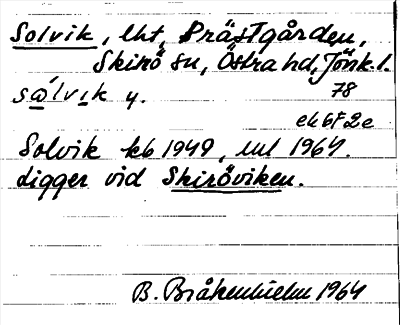 Solvik, lht, Prästgården,
Skirö sn, Östra hd, Jönk. l.
sọ́lvık y. 78
ek 6F2e
Solvik kb 1949, uul 1964.
digger vid Skiröviken.
B. Bråkenhielm 1964